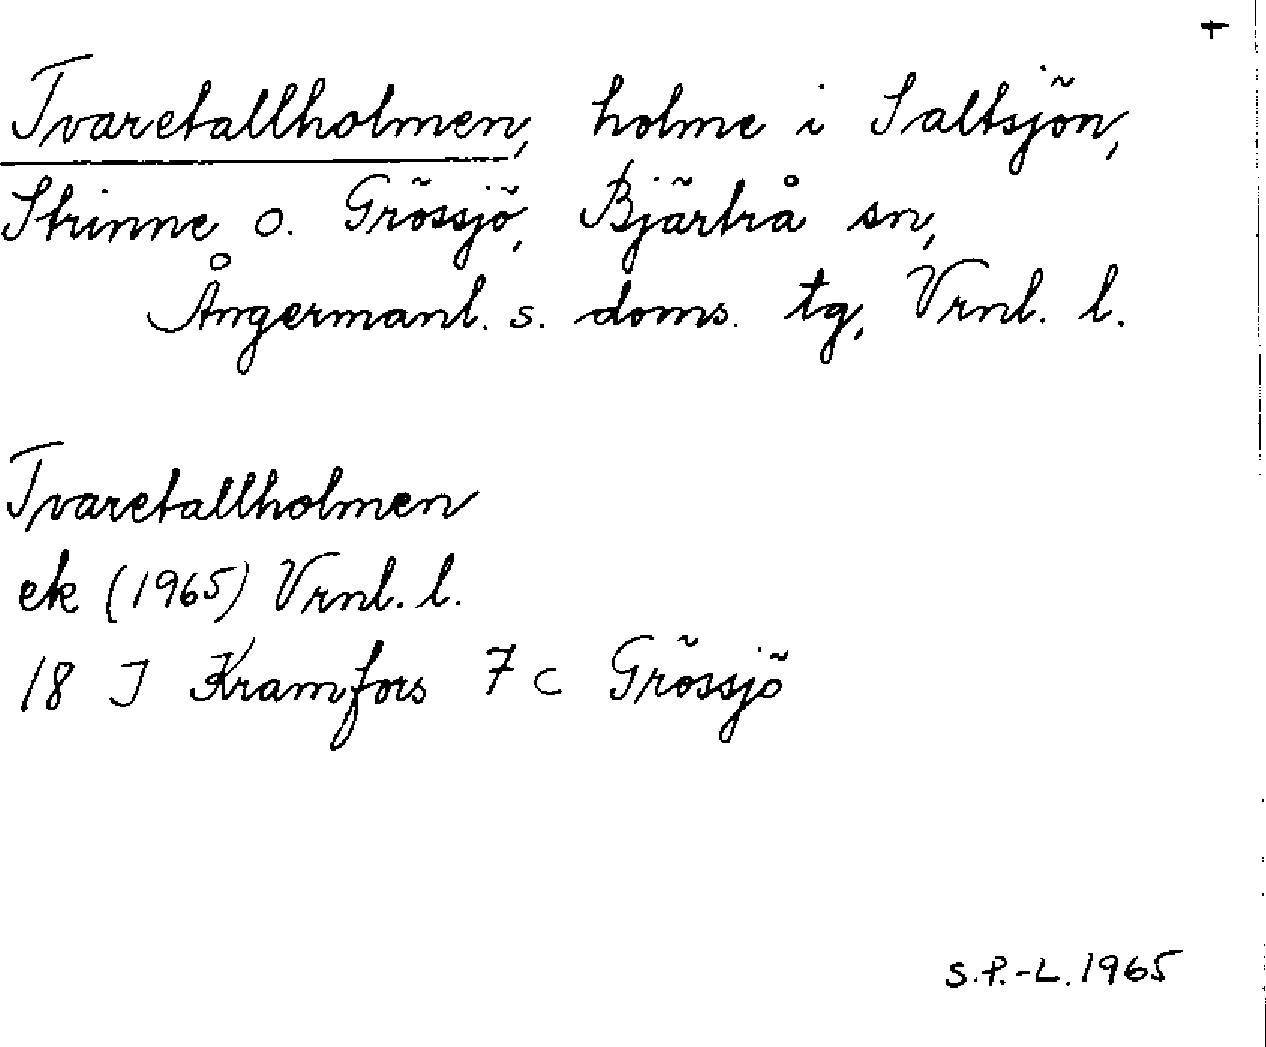 +
Tvaretallholmen, holme i Saltsjön,
Strinne o. Grössjö, Bjärtrå sn,
Ångermanl. s. doms. tg, Vrnl. l.
Tvaretallholmen
ek (1965) Vrnl. l.
18 J Kramfors 7 c Grössjö
S.P.-L. 1965